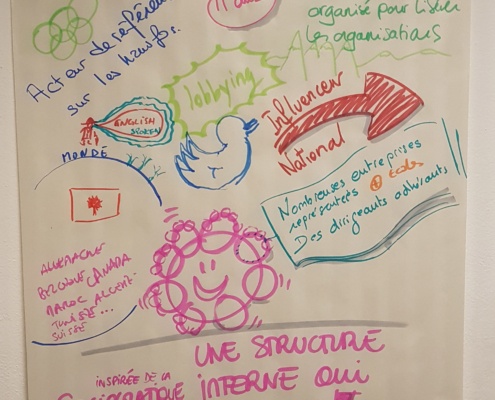 organisé pour
les organisations
Acteur de référence
sur les
lobbying
Influencer
National
ENGLISH
SPOKEN
MONDE
Nombreuses entreprises
représentées + Ecoles
Des dirigeants adhérents
ALLEMAGNE
BELGIQUE CANADA
MAROC ALGÉRIE
TUNISIE...
SUISSE
UNE STRUCTURE
INSPIRÉE DE LA
INTERNE QUI